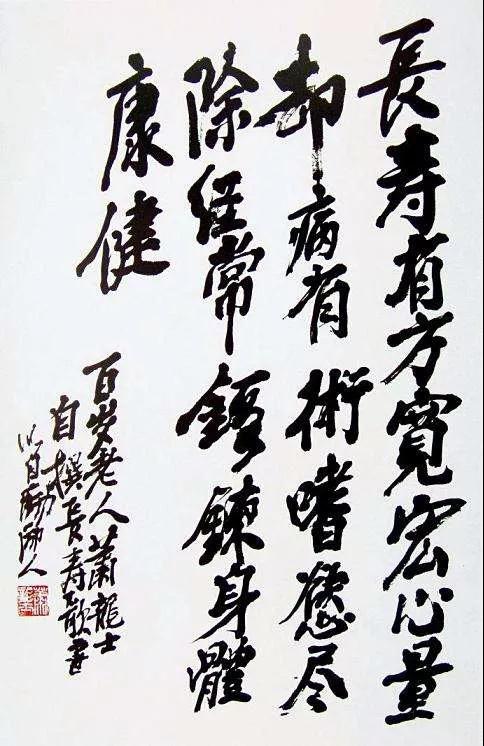 長寿有方寬宏心量
却病有術嗜慾尽
除经常鍛鍊身體
康健
百岁老人萧龍士
自撰長寿歌書
以自勵勵人